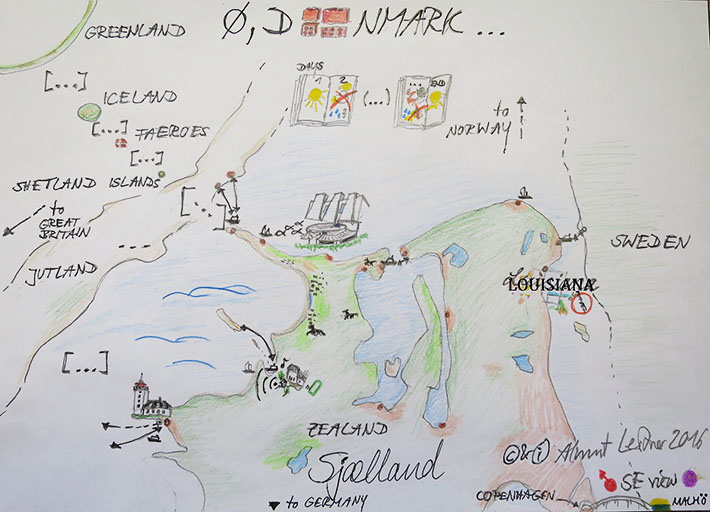 GREENLAND
Ø, D NMARK ...
[...]
ICELAND
[...]
FAEROES
[...]
SHETLAND ISLANDS
to
GREAT
BRITAIN
[...]
...
JUTLAND
DAYS
1 2
(...)
... END
to
NORWAY
SWEDEN
LOUISIANA
[...]
ZEALAND
Sjælland
to GERMANY
©&i Almut Leidner 2016
SE view
COPENHAGEN
MALMÖ